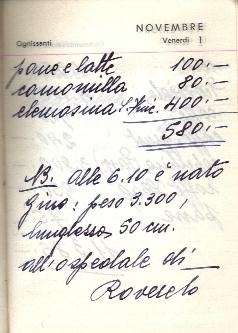 NOVEMBRE
Ognissanti Venerdì 1
pane e latte 100.-
camomilla 80.-
elemosina 400.-
580.-
NB. Alle 6.10 è nato
Gino: peso 3.300,
lunghezza 50 cm.
all'ospedale di
Rovereto